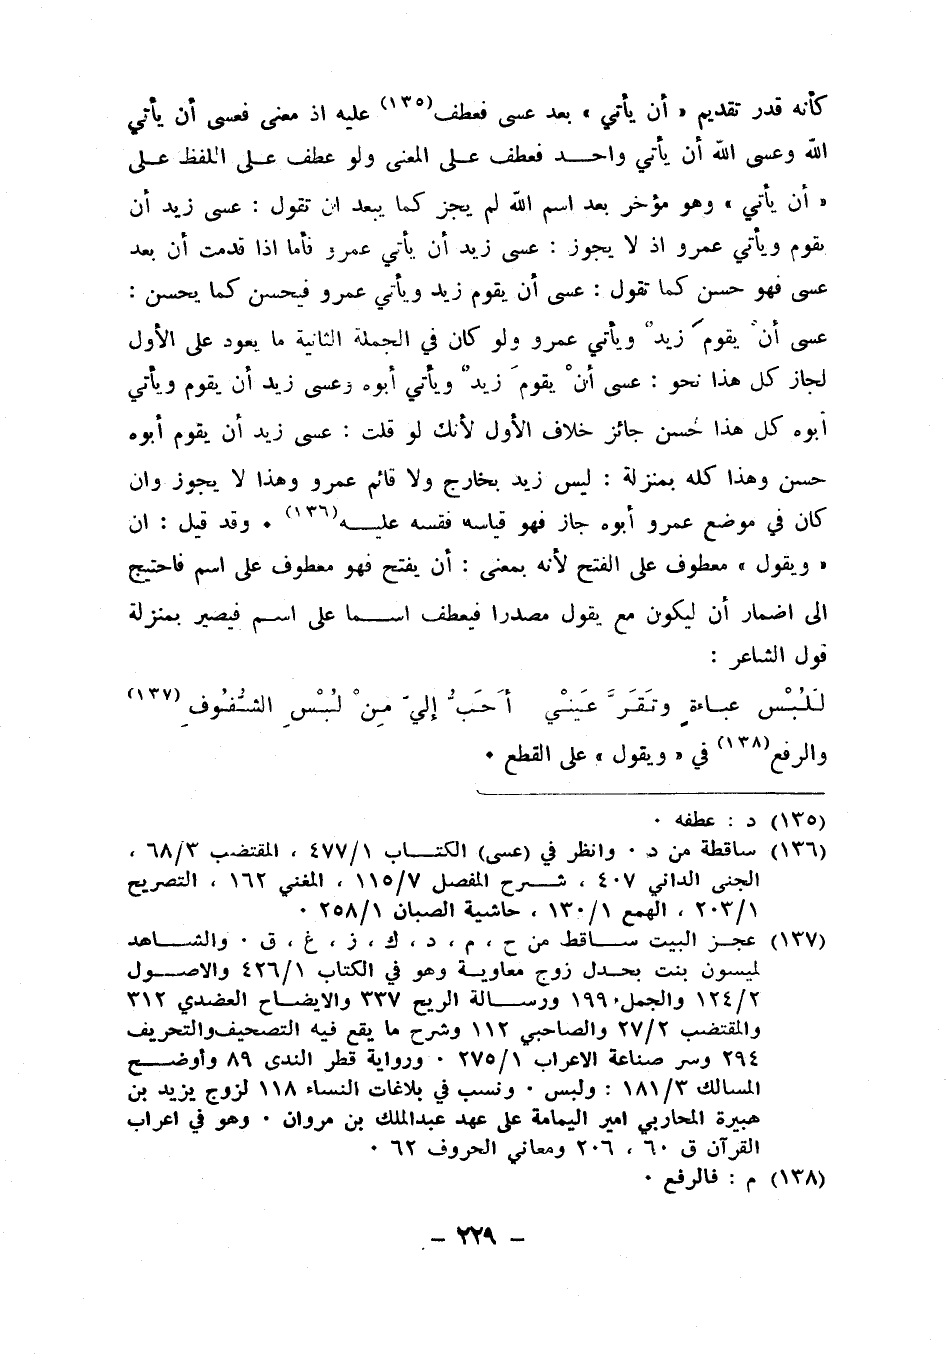 كأنه قدر تقديم « أن يأتي » بعد عسى فعطف(١٣٥) عليه اذ معنى فعسى أن يأتي
الله وعسى الله أن يأتي واحــد فعطف على المعنى ولو عطف على اللفظ على
« أن يأتي » وهو مؤخر بعد اسم الله لم يجز كما يبعد ان تقول : عسى زيد أن
يقوم ويأتي عمرو اذ لا يجوز : عسى زيد أن يأتي عمرو فأما اذا قدمت أن بعد
عسى فهو حسن كما تقول : عسى أن يقوم زيد ويأتي عمرو فيحسن كما يحسن :
عسى أنْ يقومَ زيدٌ ويأتي عمرو ولو كان في الجملة الثانية ما يعود على الأول
لجاز كل هذا نحو : عسى أنْ يقومَ زيدٌ ويأتي أبوه وعسى زيد أن يقوم ويأتي
أبوه كل هذا حُسن جائز خلاف الأول لأنك لو قلت : عسى زيد أن يقوم أبوه
حسن وهذا كله بمنزلة : ليس زيد بخارج ولا قائم عمرو وهذا لا يجوز وان
كان في موضع عمرو أبوه جاز فهو قياسه فقسه عليــه(١٣٦) ٠ وقد قيل : ان
« ويقول » معطوف على الفتح لأنه بمعنى : أن يفتح فهو معطوف على اسم فاحتيج
الى اضمار أن ليكون مع يقول مصدرا فيعطف اســما على اسـم فيصير بمنزلة
قول الشاعر :
لَلُبْس عباءةٍ وتَقَرَّ عَيْني أحَبُّ إليّ مِنْ لُبْسِ الشُّفُوفِ(١٣٧)
والرفع(١٣٨) في « ويقول » على القطع ٠
(١٣٥) د : عطفه ٠
(١٣٦) ساقطة من د ٠ وانظر في (عسى) الكتــاب ٤٧٧/١ ، المقتضب ٦٨/٣ ،
الجنى الداني ٤٠٧ ، شــرح المفصل ١١٥/٧ ، المغني ١٦٢ ، التصريح
٢٠٣/١ ، الهمع ١٣٠/١ ، حاشية الصبان ٢٥٨/١ ٠
(١٣٧) عجـز البيت ســاقط من ح ، م ، د ، ك ، ز ، غ ، ق ٠ والشــاهد
لميسون بنت بحـدل زوج معاويـة وهو في الكتاب ٤٢٦/١ والاصــول
١٢٤/٢ والجمل ١٩٩ ورســالة الريح ٣٣٧ والايضــاح العضدي ٣١٢
والمقتضب ٢٧/٢ والصاحبي ١١٢ وشرح ما يقع فيه التصحيف والتحريف
٢٩٤ وسر صناعة الاعراب ٢٧٥/١ ٠ ورواية قطر الندى ٨٩ وأوضــح
المسالك ١٨١/٣ : ولبس ٠ ونسب في بلاغات النساء ١١٨ لزوج يزيد بن
هبيرة المحاربي امير اليمامة على عهد عبدالملك بن مروان ٠ وهو في اعراب
القرآن ق ٦٠ ، ٢٠٦ ومعاني الحروف ٦٢ ٠
(١٣٨) م : فالرفع ٠
– ٢٢٩ –